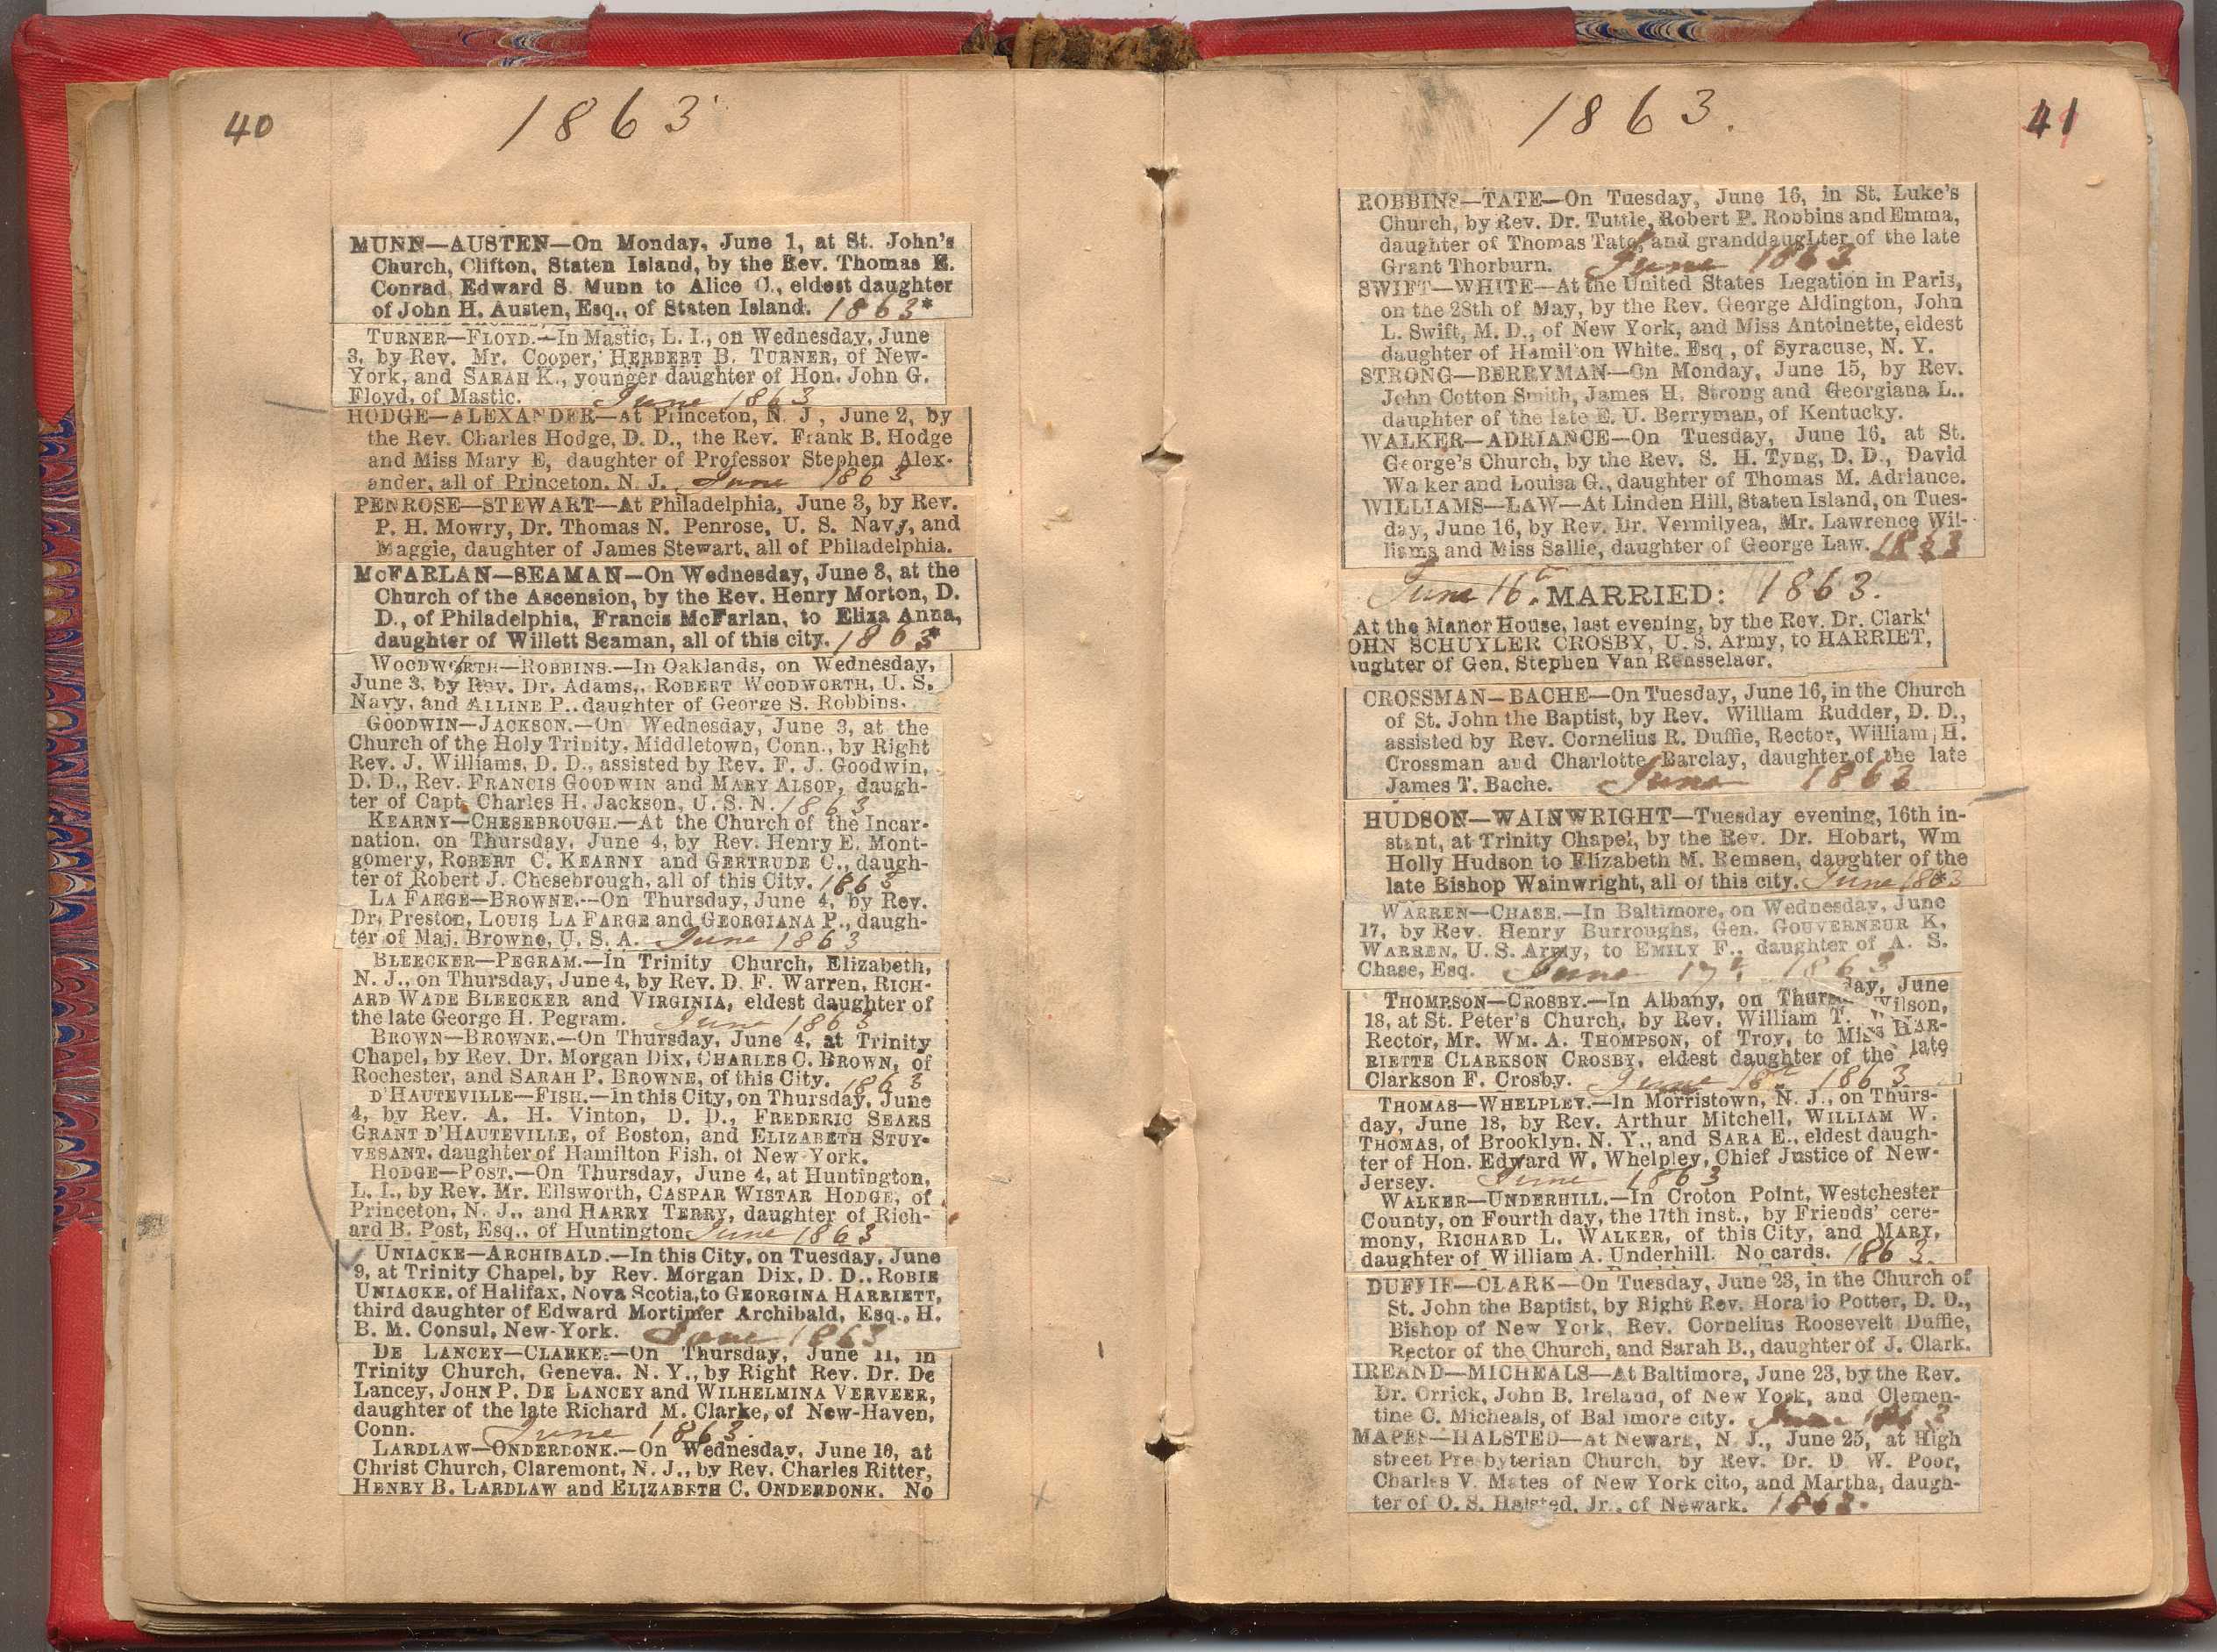 40
1863
MUNN—AUSTEN—On Monday, June 1, at St. John's
Church, Clifton, Staten Island, by the Rev. Thomas E.
Conrad, Edward S. Munn to Alice C., eldest daughter
of John H. Austen, Esq., of Staten Island. 1863*
TURNER—FLOYD.—In Mastic, L. I., on Wednesday, June
3, by Rev. Mr. Cooper, HERBERT B. TURNER, of New-
York, and SARAH K., younger daughter of Hon. John G.
Floyd, of Mastic. June 1863
HODGE—ALEXANDER—At Princeton, N. J, June 2, by
the Rev. Charles Hodge, D. D., the Rev. Frank B. Hodge
and Miss Mary E, daughter of Professor Stephen Alex-
ander, all of Princeton, N. J. June 1863
PENROSE—STEWART—At Philadelphia, June 3, by Rev.
P. H. Mowry, Dr. Thomas N. Penrose, U. S. Navy, and
Maggie, daughter of James Stewart, all of Philadelphia.
McFARLAN—SEAMAN—On Wednesday, June 3, at the
Church of the Ascension, by the Rev. Henry Morton, D.
D., of Philadelphia, Francis McFarlan, to Eliza Anna,
daughter of Willett Seaman, all of this city. 1863*
WOODWORTH—ROBBINS.—In Oaklands, on Wednesday,
June 3, by Rev. Dr. Adams,. ROBERT WOODWORTH, U. S.
Navy, and ALLINE P., daughter of George S. Robbins.
GOODWIN—JACKSON.—On Wednesday, June 3, at the
Church of the Holy Trinity, Middletown, Conn., by Right
Rev. J. Williams, D. D., assisted by Rev. F. J. Goodwin,
D. D., Rev. FRANCIS GOODWIN and MARY ALSOP, daugh-
ter of Capt. Charles H. Jackson, U. S. N. 1863
KEARNY—CHESEBROUGH.—At the Church of the Incar-
nation, on Thursday, June 4, by Rev. Henry E. Mont-
gomery, ROBERT C. KEARNY and GERTRUDE C., daugh-
ter of Robert J. Chesebrough, all of this City. 1863
LA FARGE—BROWNE.—On Thursday, June 4, by Rev.
Dr. Preston, LOUIS LA FARGE and GEORGIANA P., daugh-
ter of Maj. Browne, U. S. A. June 1863
BLEECKER—PEGRAM.—In Trinity Church, Elizabeth,
N. J., on Thursday, June 4, by Rev. D. F. Warren, RICH-
ARD WADE BLEECKER and VIRGINIA, eldest daughter of
the late George H. Pegram. June 1863
BROWN—BROWNE.—On Thursday, June 4, at Trinity
Chapel, by Rev. Dr. Morgan Dix, CHARLES C. BROWN, of
Rochester, and SARAH P. BROWNE, of this City. 1863
D'HAUTEVILLE—FISH.—In this City, on Thursday, June
4, by Rev. A. H. Vinton, D. D., FREDERIC SEARS
GRANT D'HAUTEVILLE, of Boston, and ELIZABETH STUY-
VESANT, daughter of Hamilton Fish, of New-York.
HODGE—POST.—On Thursday, June 4, at Huntington,
L. I., by Rev. Mr. Ellsworth, CASPAR WISTAR HODGE, of
Princeton, N. J., and HARRY TERRY, daughter of Rich-
ard B. Post, Esq., of Huntington. June 1863
UNIACKE—ARCHIBALD.—In this City, on Tuesday, June
9, at Trinity Chapel, by Rev. Morgan Dix, D. D., ROBIE
UNIACKE, of Halifax, Nova Scotia, to GEORGINA HARRIETT,
third daughter of Edward Mortimer Archibald, Esq., H.
B. M. Consul, New-York. June 1863
DE LANCEY—CLARKE.—On Thursday, June 11, in
Trinity Church, Geneva, N. Y., by Right Rev. Dr. De
Lancey, JOHN P. DE LANCEY and WILHELMINA VERVEER,
daughter of the late Richard M. Clarke, of New-Haven,
Conn. June 1863.
LARDLAW—ONDERDONK.—On Wednesday, June 10, at
Christ Church, Claremont, N. J., by Rev. Charles Ritter,
HENRY B. LARDLAW and ELIZABETH C. ONDERDONK. No
1863.
41
ROBBINS—TATE—On Tuesday, June 16, in St. Luke's
Church, by Rev. Dr. Tuttle, Robert P. Robbins and Emma,
daughter of Thomas Tate, and granddaughter of the late
Grant Thorburn. June 1863
SWIFT—WHITE—At the United States Legation in Paris,
on the 28th of May, by the Rev. George Aldington, John
L. Swift, M. D., of New York, and Miss Antoinette, eldest
daughter of Hamilton White, Esq, of Syracuse, N. Y.
STRONG—BERRYMAN—On Monday, June 15, by Rev.
John Cotton Smith, James H. Strong and Georgiana L.,
daughter of the late E. U. Berryman, of Kentucky.
WALKER—ADRIANCE—On Tuesday, June 16, at St.
George's Church, by the Rev. S. H. Tyng, D. D., David
Walker and Louisa G., daughter of Thomas M. Adriance.
WILLIAMS—LAW—At Linden Hill, Staten Island, on Tues-
day, June 16, by Rev. Dr. Vermilyea, Mr. Lawrence Wil-
liams and Miss Sallie, daughter of George Law. 1863
June 16th. MARRIED: 1863.
At the Manor House, last evening, by the Rev. Dr. Clark
OHN SCHUYLER CROSBY, U. S. Army, to HARRIET,
aughter of Gen. Stephen Van Rensselaer.
CROSSMAN—BACHE—On Tuesday, June 16, in the Church
of St. John the Baptist, by Rev. William Rudder, D. D.,
assisted by Rev. Cornelius R. Duffie, Rector, William H.
Crossman and Charlotte Barclay, daughter of the late
James T. Bache. June 1863
HUDSON—WAINWRIGHT—Tuesday evening, 16th in-
stant, at Trinity Chapel, by the Rev. Dr. Hobart, Wm
Holly Hudson to Elizabeth M. Remsen, daughter of the
late Bishop Wainwright, all of this city. June 1863
WARREN—CHASE.—In Baltimore, on Wednesday, June
17, by Rev. Henry Burroughs, Gen. GOUVERNEUR K.
WARREN, U. S. Army, to EMILY F., daughter of A. S.
Chase, Esq. June 17th. 1863
THOMPSON—CROSBY.—In Albany, on Thursday, June
18, at St. Peter's Church, by Rev. William T. Wilson,
Rector, Mr. WM. A. THOMPSON, of Troy, to Miss HAR-
RIETTE CLARKSON CROSBY, eldest daughter of the late
Clarkson F. Crosby. June 18th 1863.
THOMAS—WHELPLEY.—In Morristown, N. J., on Thurs-
day, June 18, by Rev. Arthur Mitchell, WILLIAM W.
THOMAS, of Brooklyn, N. Y., and SARA E., eldest daugh-
ter of Hon. Edward W. Whelpley, Chief Justice of New-
Jersey. June 1863
WALKER—UNDERHILL.—In Croton Point, Westchester
County, on Fourth day, the 17th inst., by Friends' cere-
mony, RICHARD L. WALKER, of this City, and MARY,
daughter of William A. Underhill. No cards. 1863.
DUFFIE—CLARK—On Tuesday, June 23, in the Church of
St. John the Baptist, by Right Rev. Hora io Potter, D. D.,
Bishop of New York, Rev. Cornelius Roosevelt Duffie,
Rector of the Church, and Sarah B., daughter of J. Clark.
IREAND—MICHEALS—At Baltimore, June 23, by the Rev.
Dr. Orrick, John B. Ireland, of New York, and Clemen-
tine C. Micheals, of Bal imore city. June 1863
MAPES—HALSTED—At Newark, N. J., June 25, at High
street Pre byterian Church, by Rev. Dr. D. W. Poor,
Charles V. Mates of New York cito, and Martha, daugh-
ter of O. S. Halsted, Jr., of Newark. 1863.